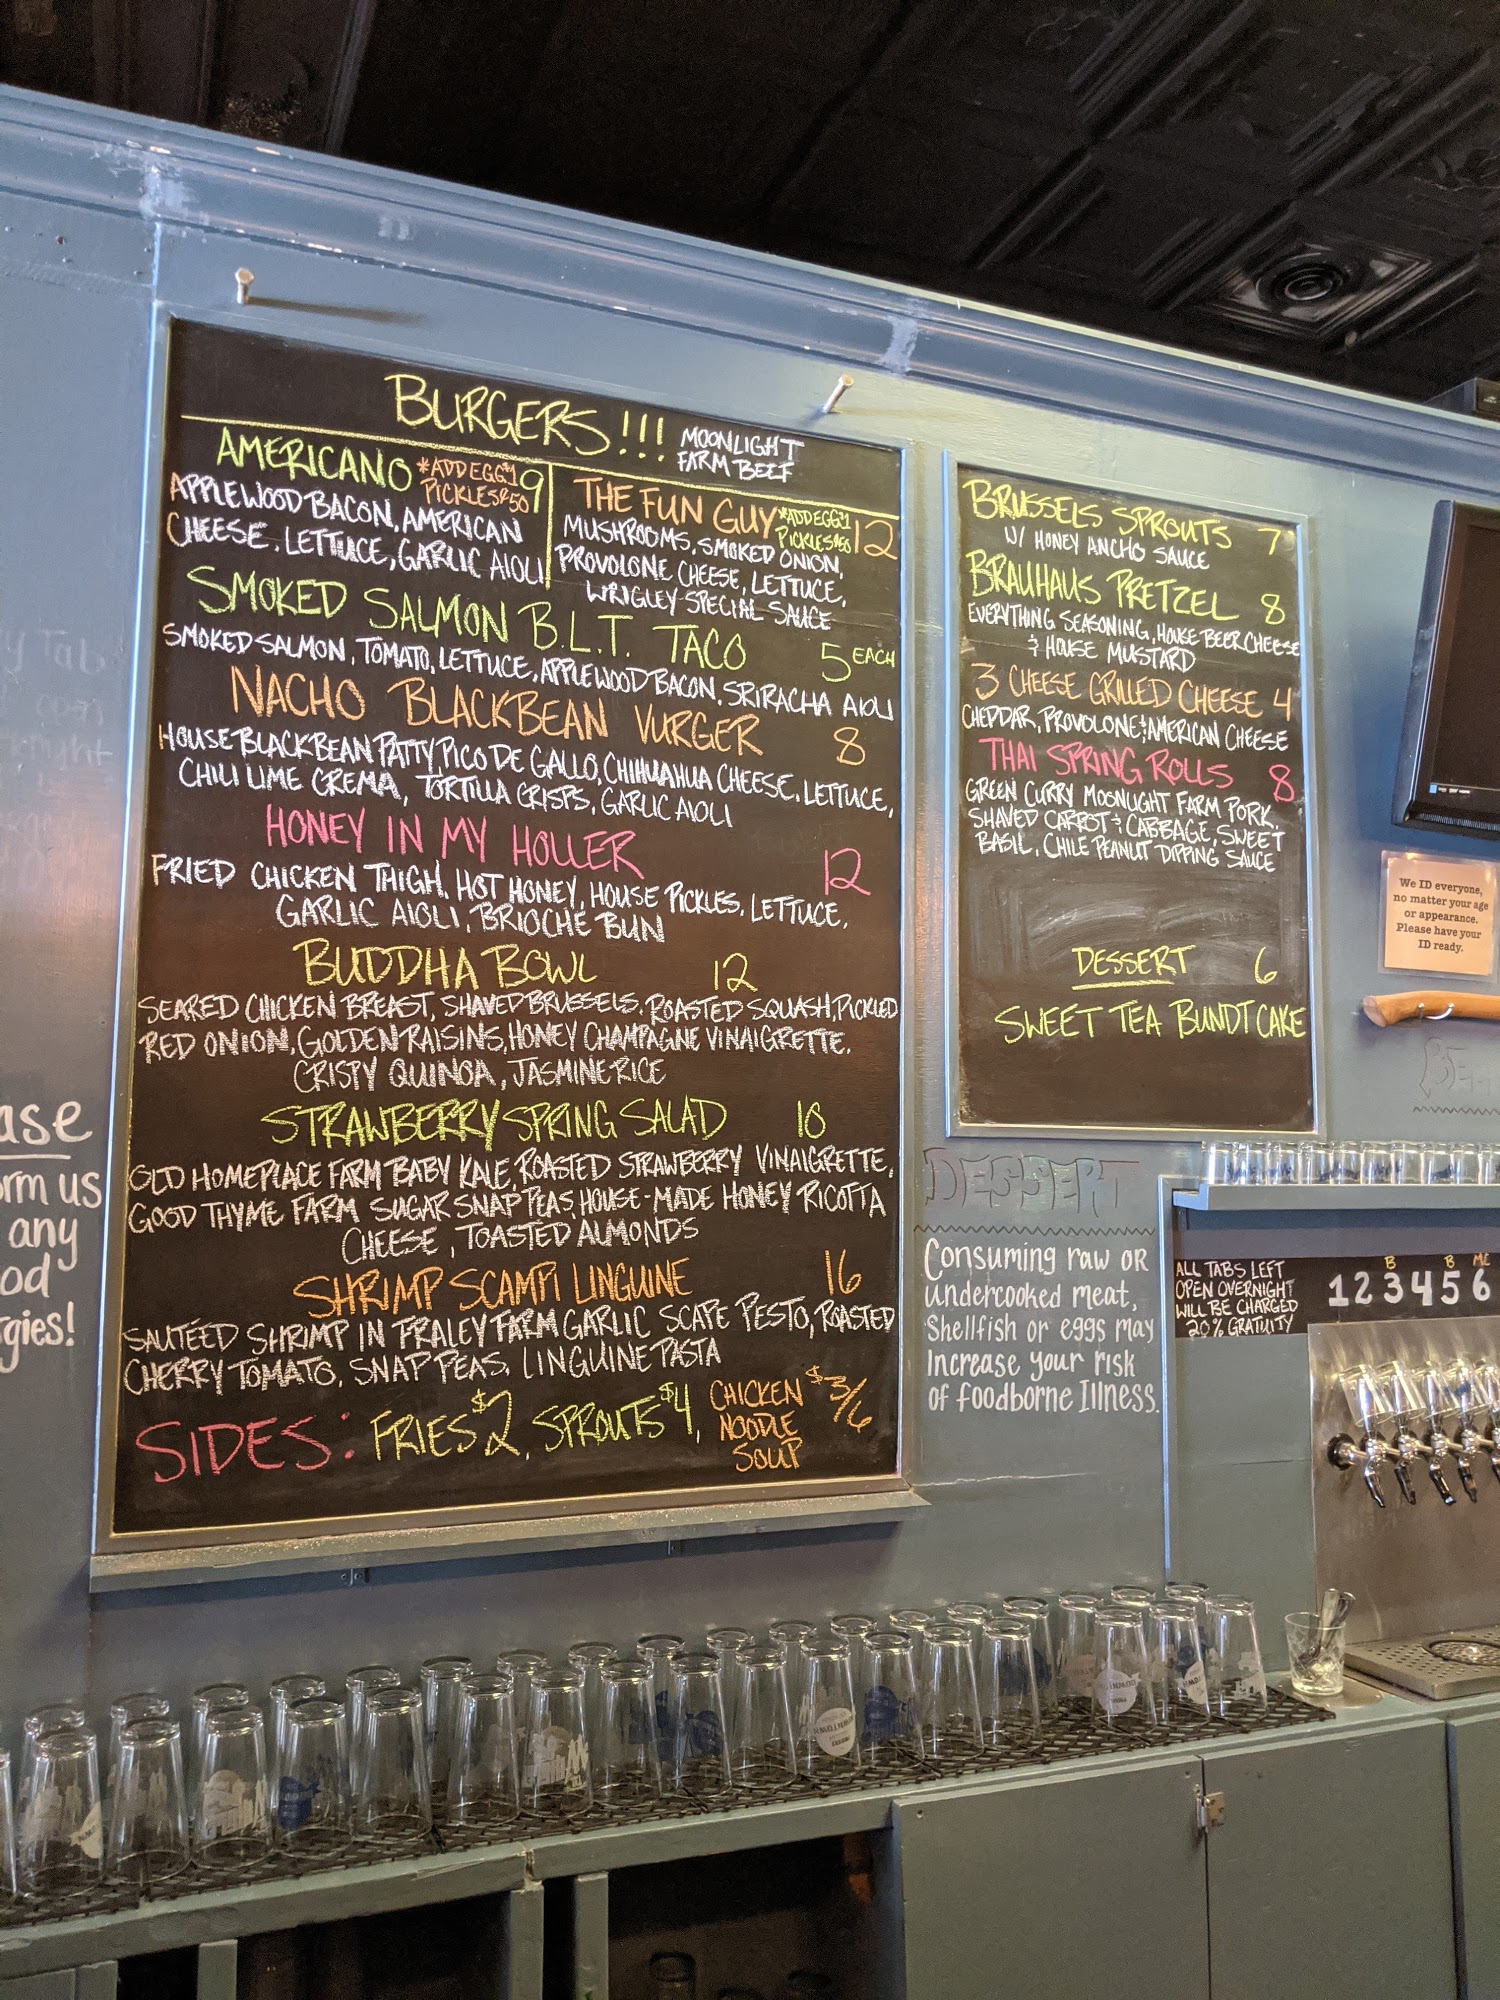 BURGERS!!! MOONLIGHT
FARM BEEF
AMERICANO *ADD EGG $1 9
PICKLES $.50
APPLEWOOD BACON, AMERICAN
CHEESE, LETTUCE, GARLIC AIOLI
THE FUN GUY *ADD EGG $1 12
PICKLES $.50
MUSHROOMS, SMOKED ONION,
PROVOLONE CHEESE, LETTUCE,
WRIGLEY SPECIAL SAUCE
SMOKED SALMON B.L.T. TACO 5 EACH
SMOKED SALMON, TOMATO, LETTUCE, APPLEWOOD BACON, SRIRACHA AIOLI
NACHO BLACKBEAN VURGER 8
HOUSE BLACKBEAN PATTY, PICO DE GALLO, CHIHUAHUA CHEESE, LETTUCE,
CHILI LIME CREMA, TORTILLA CRISPS, GARLIC AIOLI
HONEY IN MY HOLLER 12
FRIED CHICKEN THIGH, HOT HONEY, HOUSE PICKLES, LETTUCE,
GARLIC AIOLI, BRIOCHE BUN
BUDDHA BOWL 12
SEARED CHICKEN BREAST, SHAVED BRUSSELS, ROASTED SQUASH, PICKLED
RED ONION, GOLDEN RAISINS, HONEY CHAMPAGNE VINAIGRETTE,
CRISPY QUINOA, JASMINE RICE
STRAWBERRY SPRING SALAD 10
OLD HOMEPLACE FARM BABY KALE, ROASTED STRAWBERRY VINAIGRETTE,
GOOD THYME FARM SUGAR SNAP PEAS, HOUSE-MADE HONEY RICOTTA
CHEESE, TOASTED ALMONDS
SHRIMP SCAMPI LINGUINE 16
SAUTÉED SHRIMP IN FRALEY FARM GARLIC SCAPE PESTO, ROASTED
CHERRY TOMATO, SNAP PEAS, LINGUINE PASTA
SIDES: FRIES $2, SPROUTS $4, CHICKEN $3/6
NOODLE
SOUP
BRUSSELS SPROUTS 7
W/ HONEY ANCHO SAUCE
BRAUHAUS PRETZEL 8
EVERYTHING SEASONING, HOUSE BEER CHEESE
& HOUSE MUSTARD
3 CHEESE GRILLED CHEESE 4
CHEDDAR, PROVOLONE & AMERICAN CHEESE
THAI SPRING ROLLS 8
GREEN CURRY MOONLIGHT FARM PORK,
SHAVED CARROT & CABBAGE, SWEET
BASIL, CHILE PEANUT DIPPING SAUCE
DESSERT 6
SWEET TEA BUNDT CAKE
We ID everyone,
no matter your age
or appearance.
Please have your
ID ready.
DESSERT
Consuming raw or
undercooked meat,
Shellfish or eggs may
increase your risk
of foodborne Illness.
ALL TABS LEFT
OPEN OVERNIGHT
WILL BE CHARGED
20% GRATUITY
B B
1 2 3 4 5 6
ase
orm us
any
od
gies!